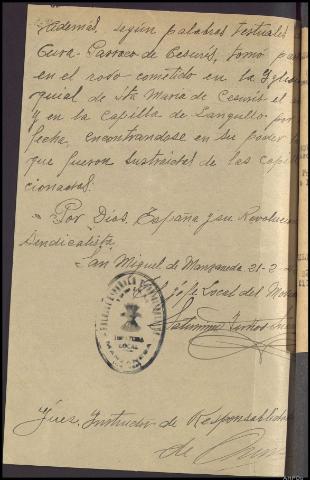 Además, según palabras textuales
Cura-Parroco de Cesuris, tomo par
en el robo cometido en la Igles
quial de Sta Maria de Cesuris el
y en la Capilla de Langullo por
fecha, encontrandose en su poder
que fueron sustraidos de las capi
cionadas.
"Por Dios, España y su Revolucion
Sindicalista,
San Miguel de Manzaneda 21-2-
Jefe Local del Mov
JEFATURA
LOCAL
Juez Instructor de Responsabilidad
de